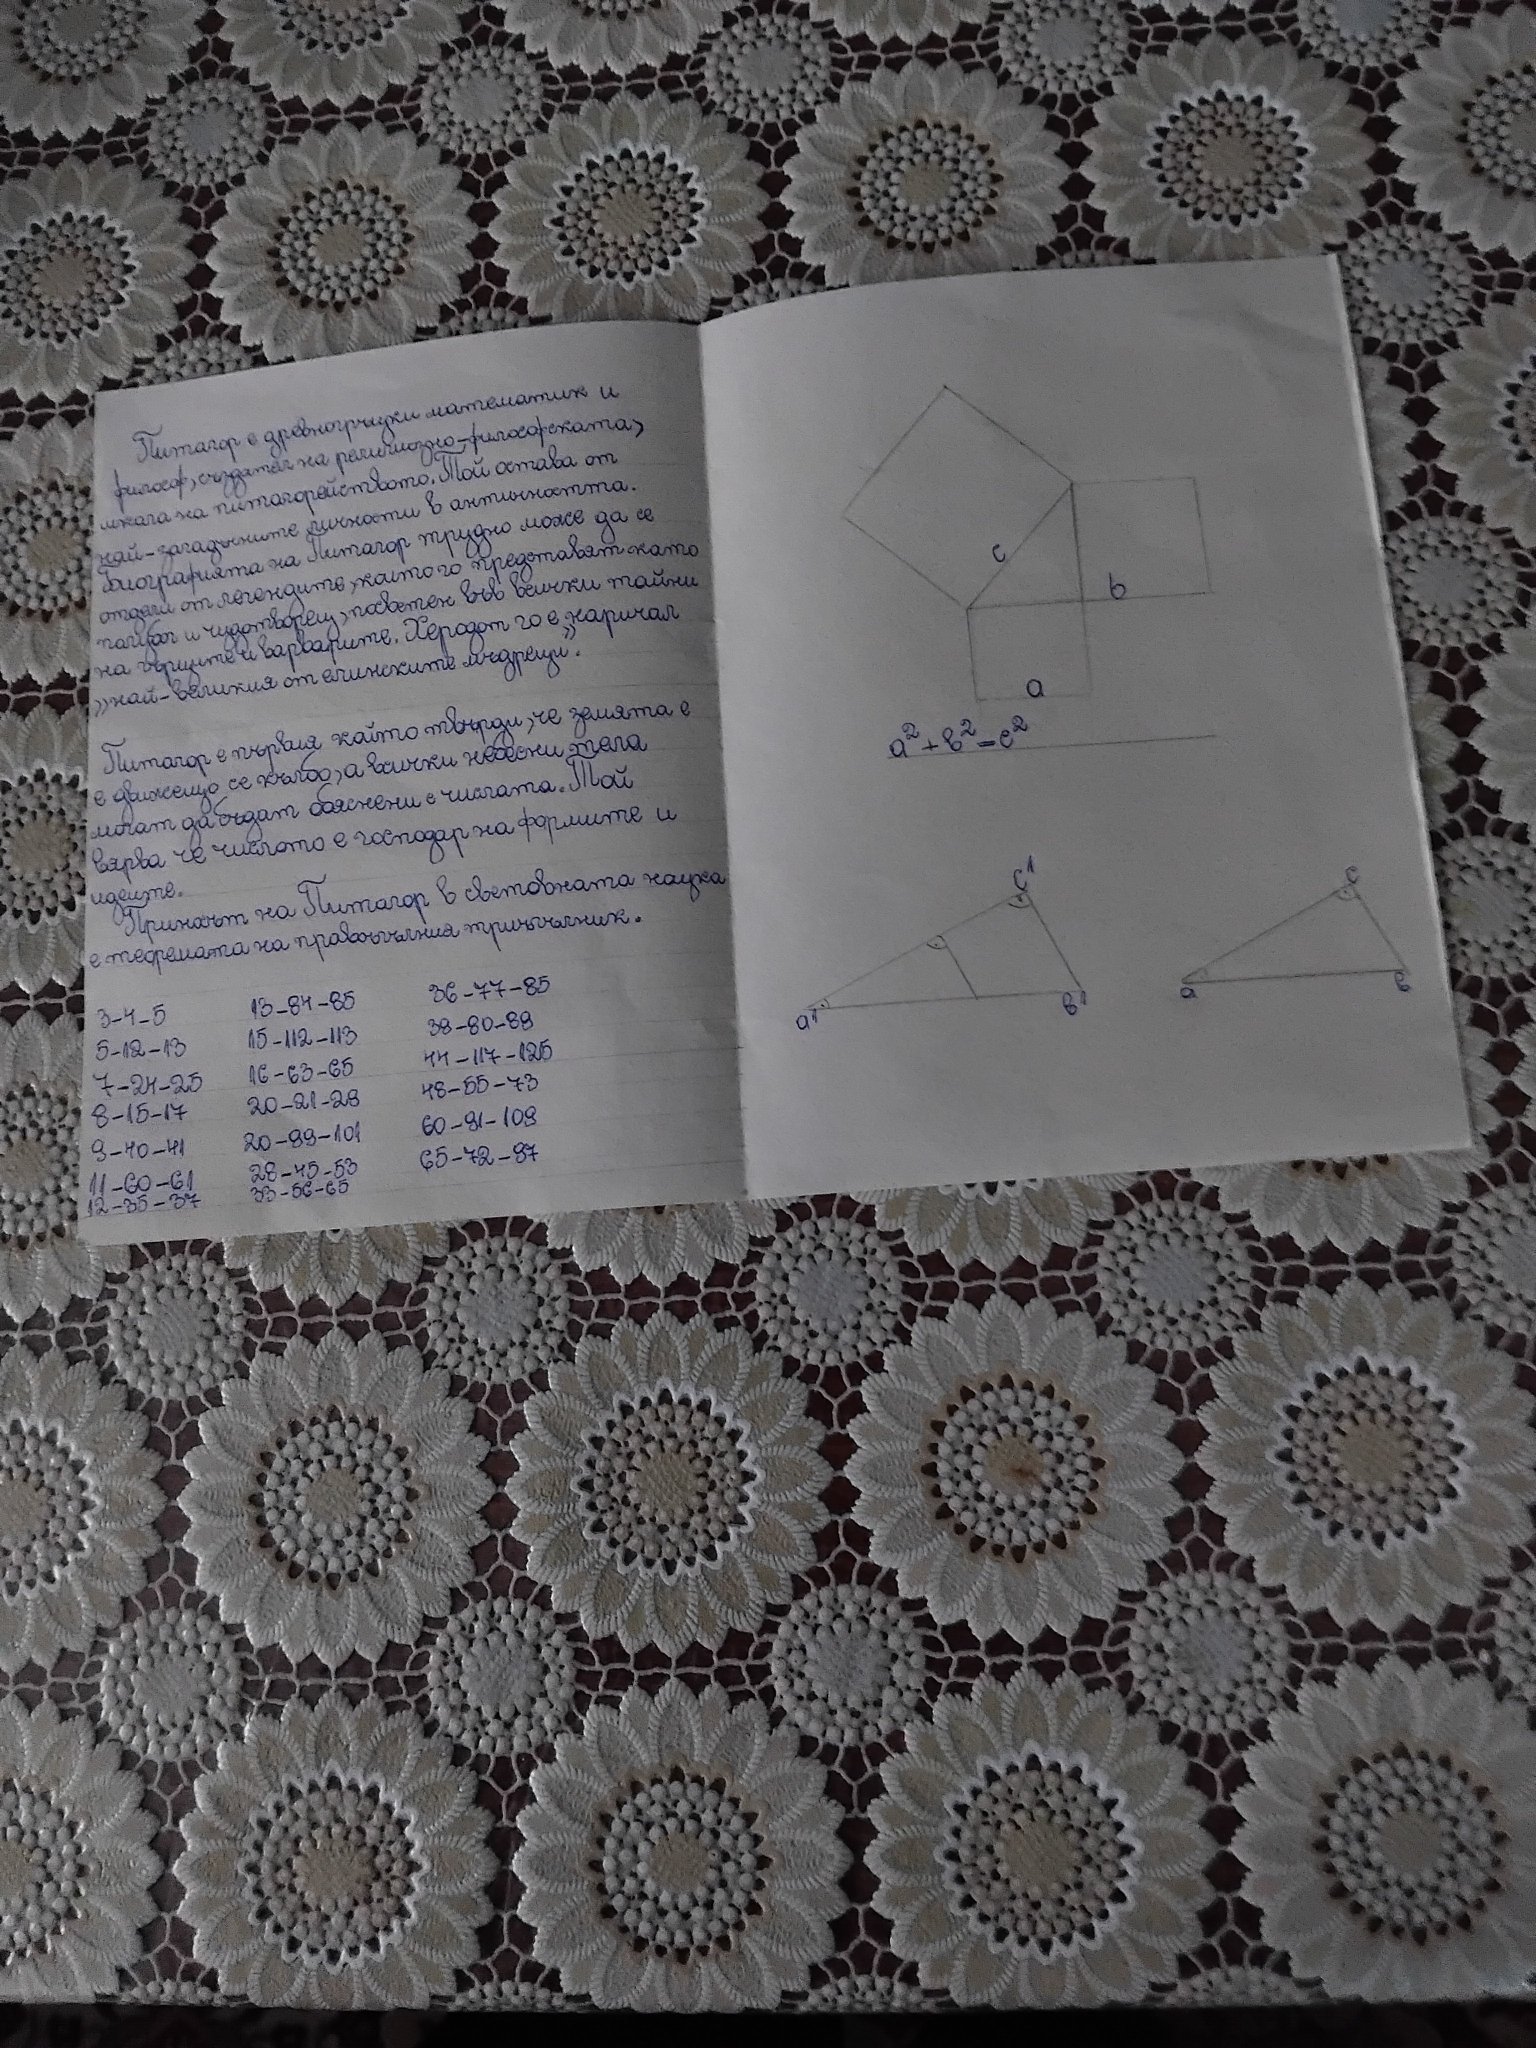 Питагор е древногръцки математик и
философ, създател на религиозно-философската,
школа на питагорейството. Той остава от
най-загадъчните личности в античността.
Биографията на Питагор трудно може да се
отдели от легендите, които го представят като
полубог и чудотворец, посветен във всички тайни
на гърците и варварите. Херодот го е наричал
„най-великия от елинските мъдреци".
Питагор е първия който твърди, че земята е
е движещо се кълбо, а всички небесни тела
могат да бъдат обяснени с числата. Той
вярва че числото е господар на формите и
идеите.
Приносът на Питагор в световната наука
е теоремата на правоъгълния триъгълник.
3-4-5
5-12-13
7-24-25
8-15-17
9-40-41
11-60-61
12-35-37
13-84-85
15-112-113
16-63-65
20-21-29
20-99-101
28-45-53
33-56-65
36-77-85
39-80-89
44-117-125
48-55-73
60-91-109
65-72-97
c
b
a
a²+b²=c²
c¹
a¹
b¹
c
a
b